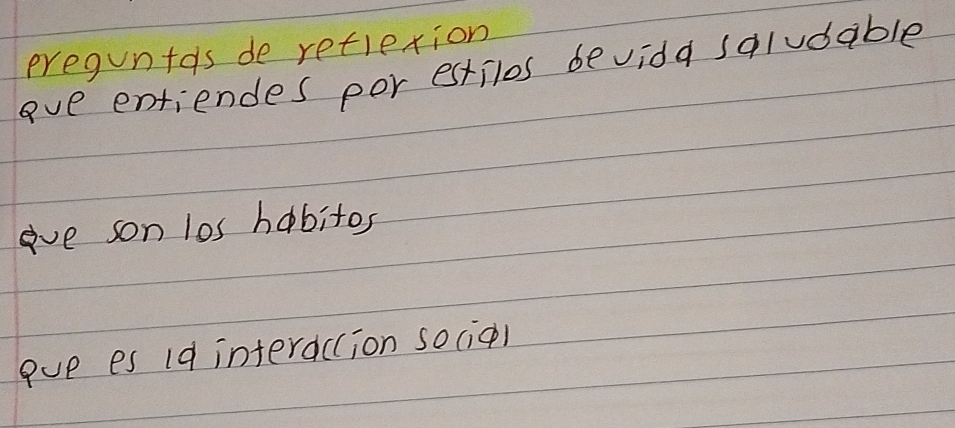 preguntas de reflexion
Que entiendes por estilos de vida saludable
Que son los habitos
Que es la interaccion social